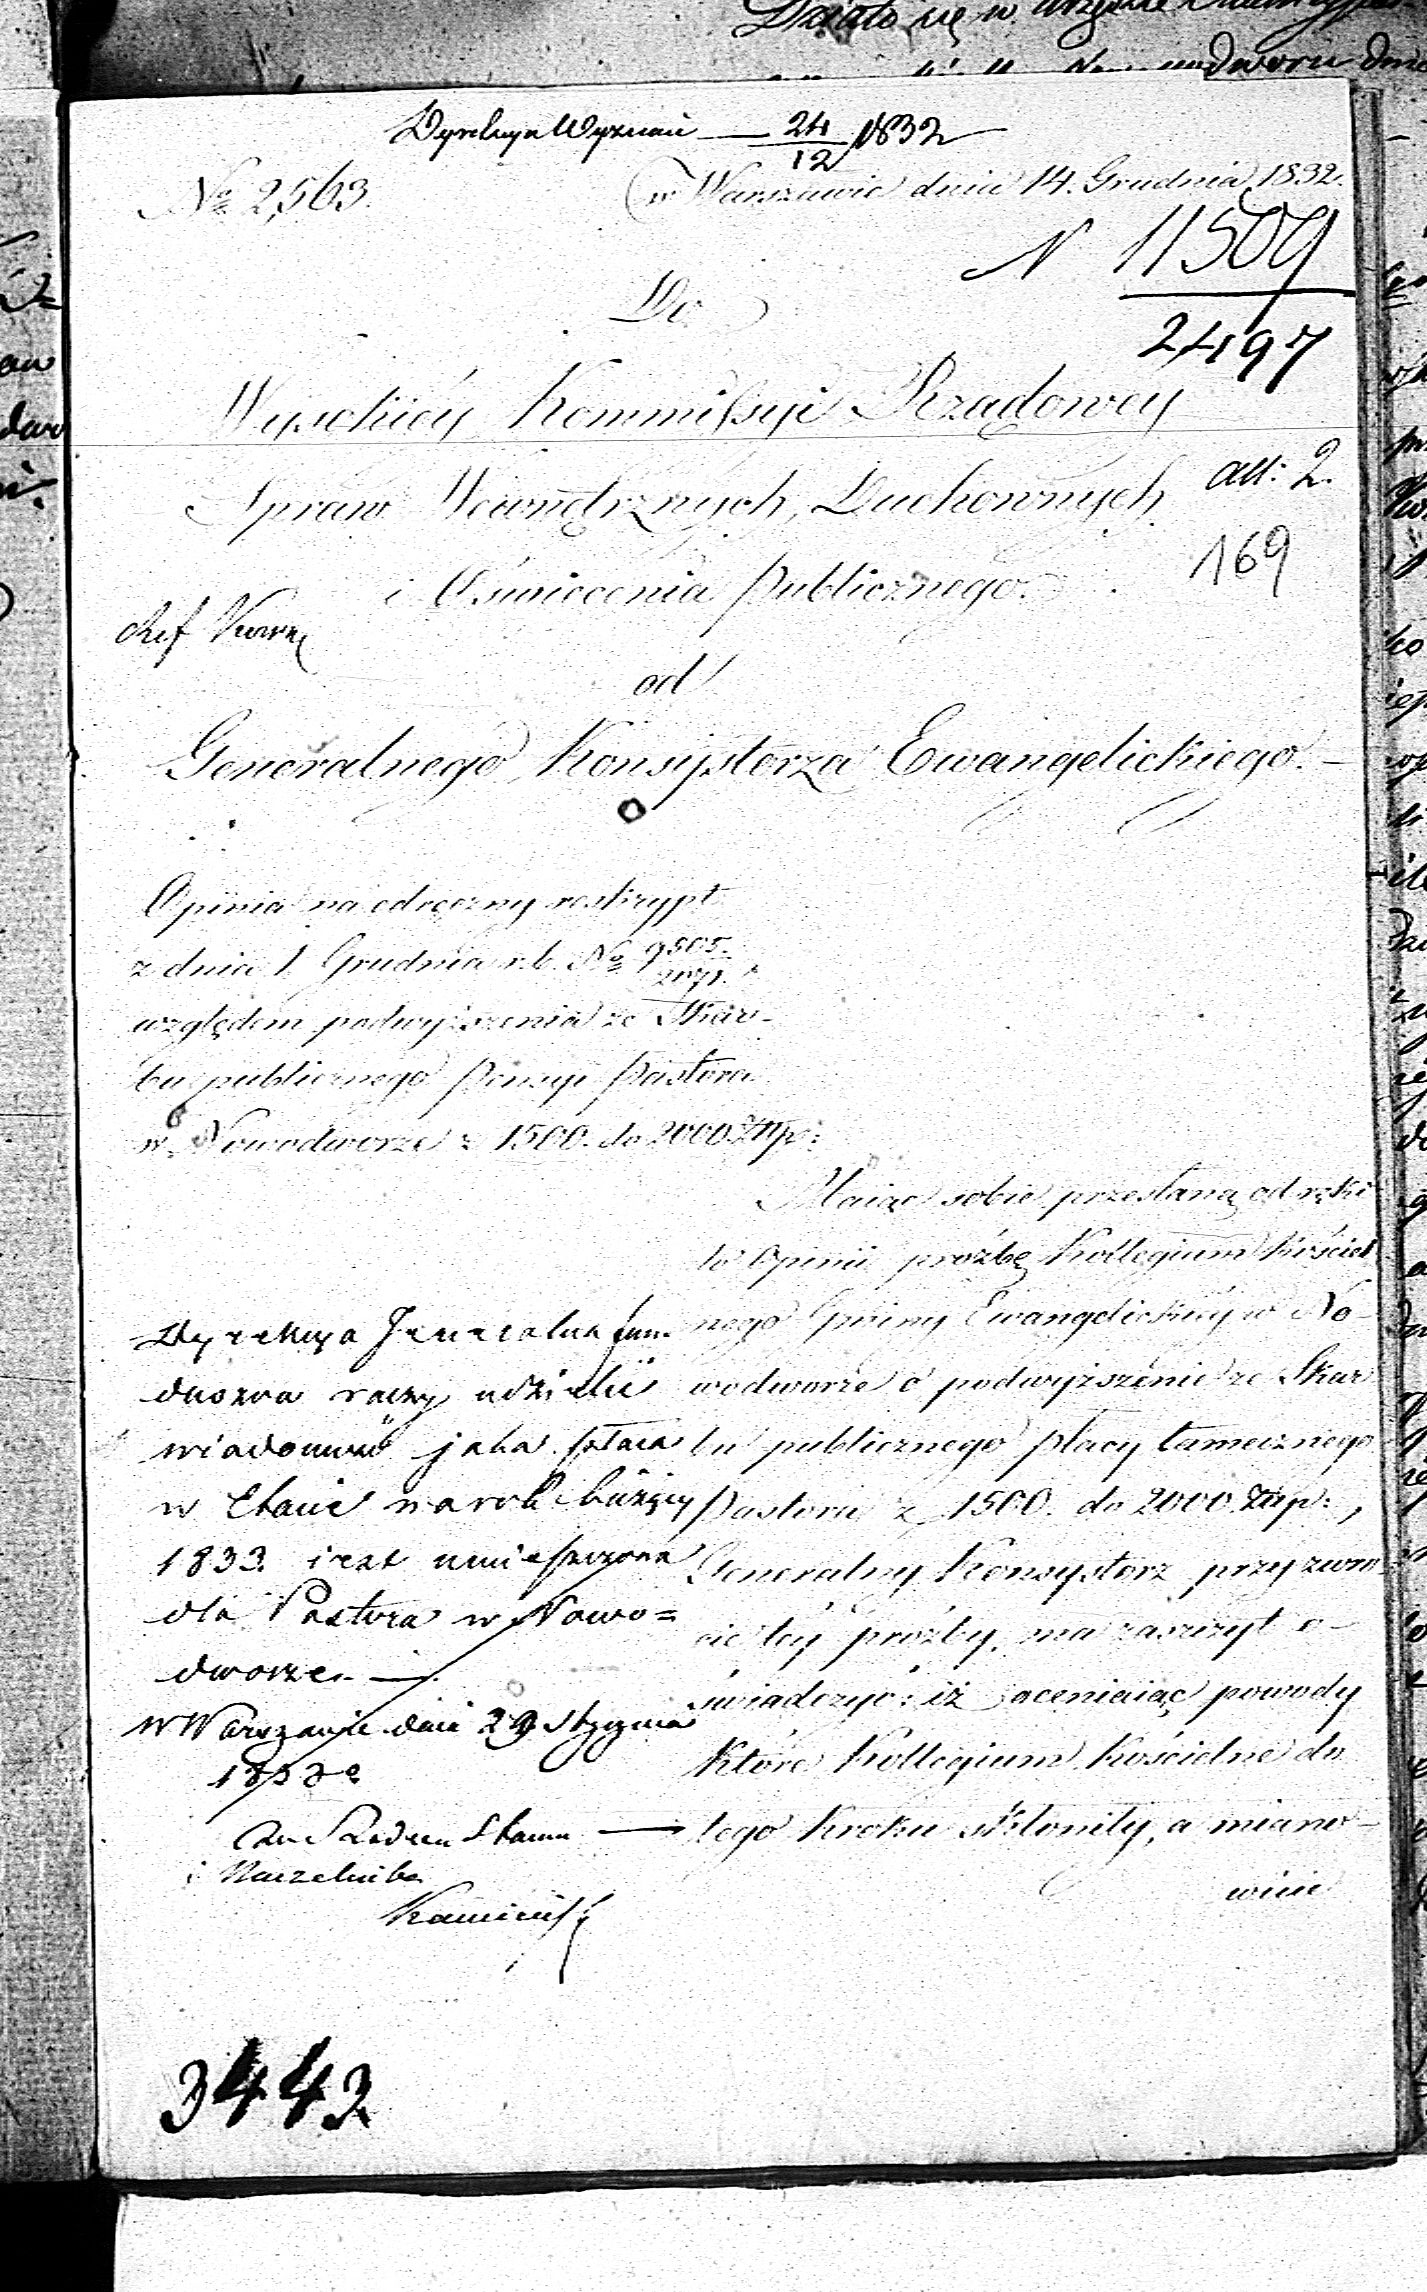 Dyrekcya Wyznań — 24/12 1832
w Warszawie dnia 14. Grudnia 1832.
No 2,563.
N 11509
2497
Do
Wysokiéy Kommissyi Rządowéy
Spraw Wewnętrznych, Duchownych
att: 2.
i Oświecenia Publicznego.
169
od
Generalnego Konsystorza Ewangelickiego.
Opinia na odręczny reskrypt
z dnia 1 Grudnia r.b. No 9505./2071.
względem podwyższenia ze Skar-
bu publicznego pensyi Pastora
w Nowodworze z 1500. do 2000 Złłp:
Maiąc sobie przesłaną od ręki
do Opinii prozbę Kollegium Kościel
nego Gminy Ewangelickiéy w No-
wodworze o podwyższenie ze Skar
bu publicznego płacy tamecznego
Pastora z 1500. do 2000. Złłp:,
Generalny Konsystorz przy zwro
cie téy prozby, ma zaszczyt o-
świadczyć: iż oceniaiąc powody
które Kollegium Kościelne do
tego kroku skłoniły, a miano-
wicie
Dyrekcya Jeneralna fun-
duszowa raczy udzielić
wiadomość jaka płaca
w Etacie na rok bieżący
1833 iest umieszczona
dla Pastora w Nowo=
dworze. —
W Warszawie dnia 29 Stycznia
1833 r
Radca Stanu
i Naczelnika
Kamiński
3443